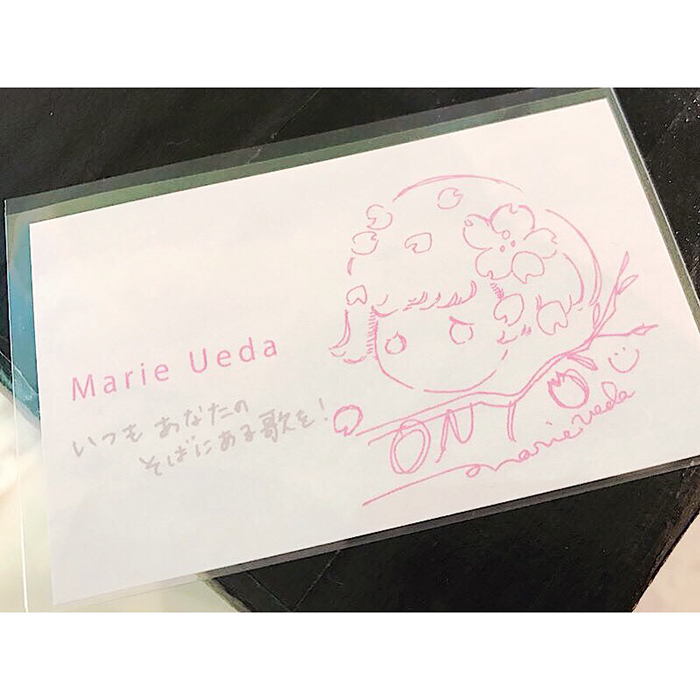 Marie Ueda
いつも あなたの
そばにある歌を!
ON
marie ueda